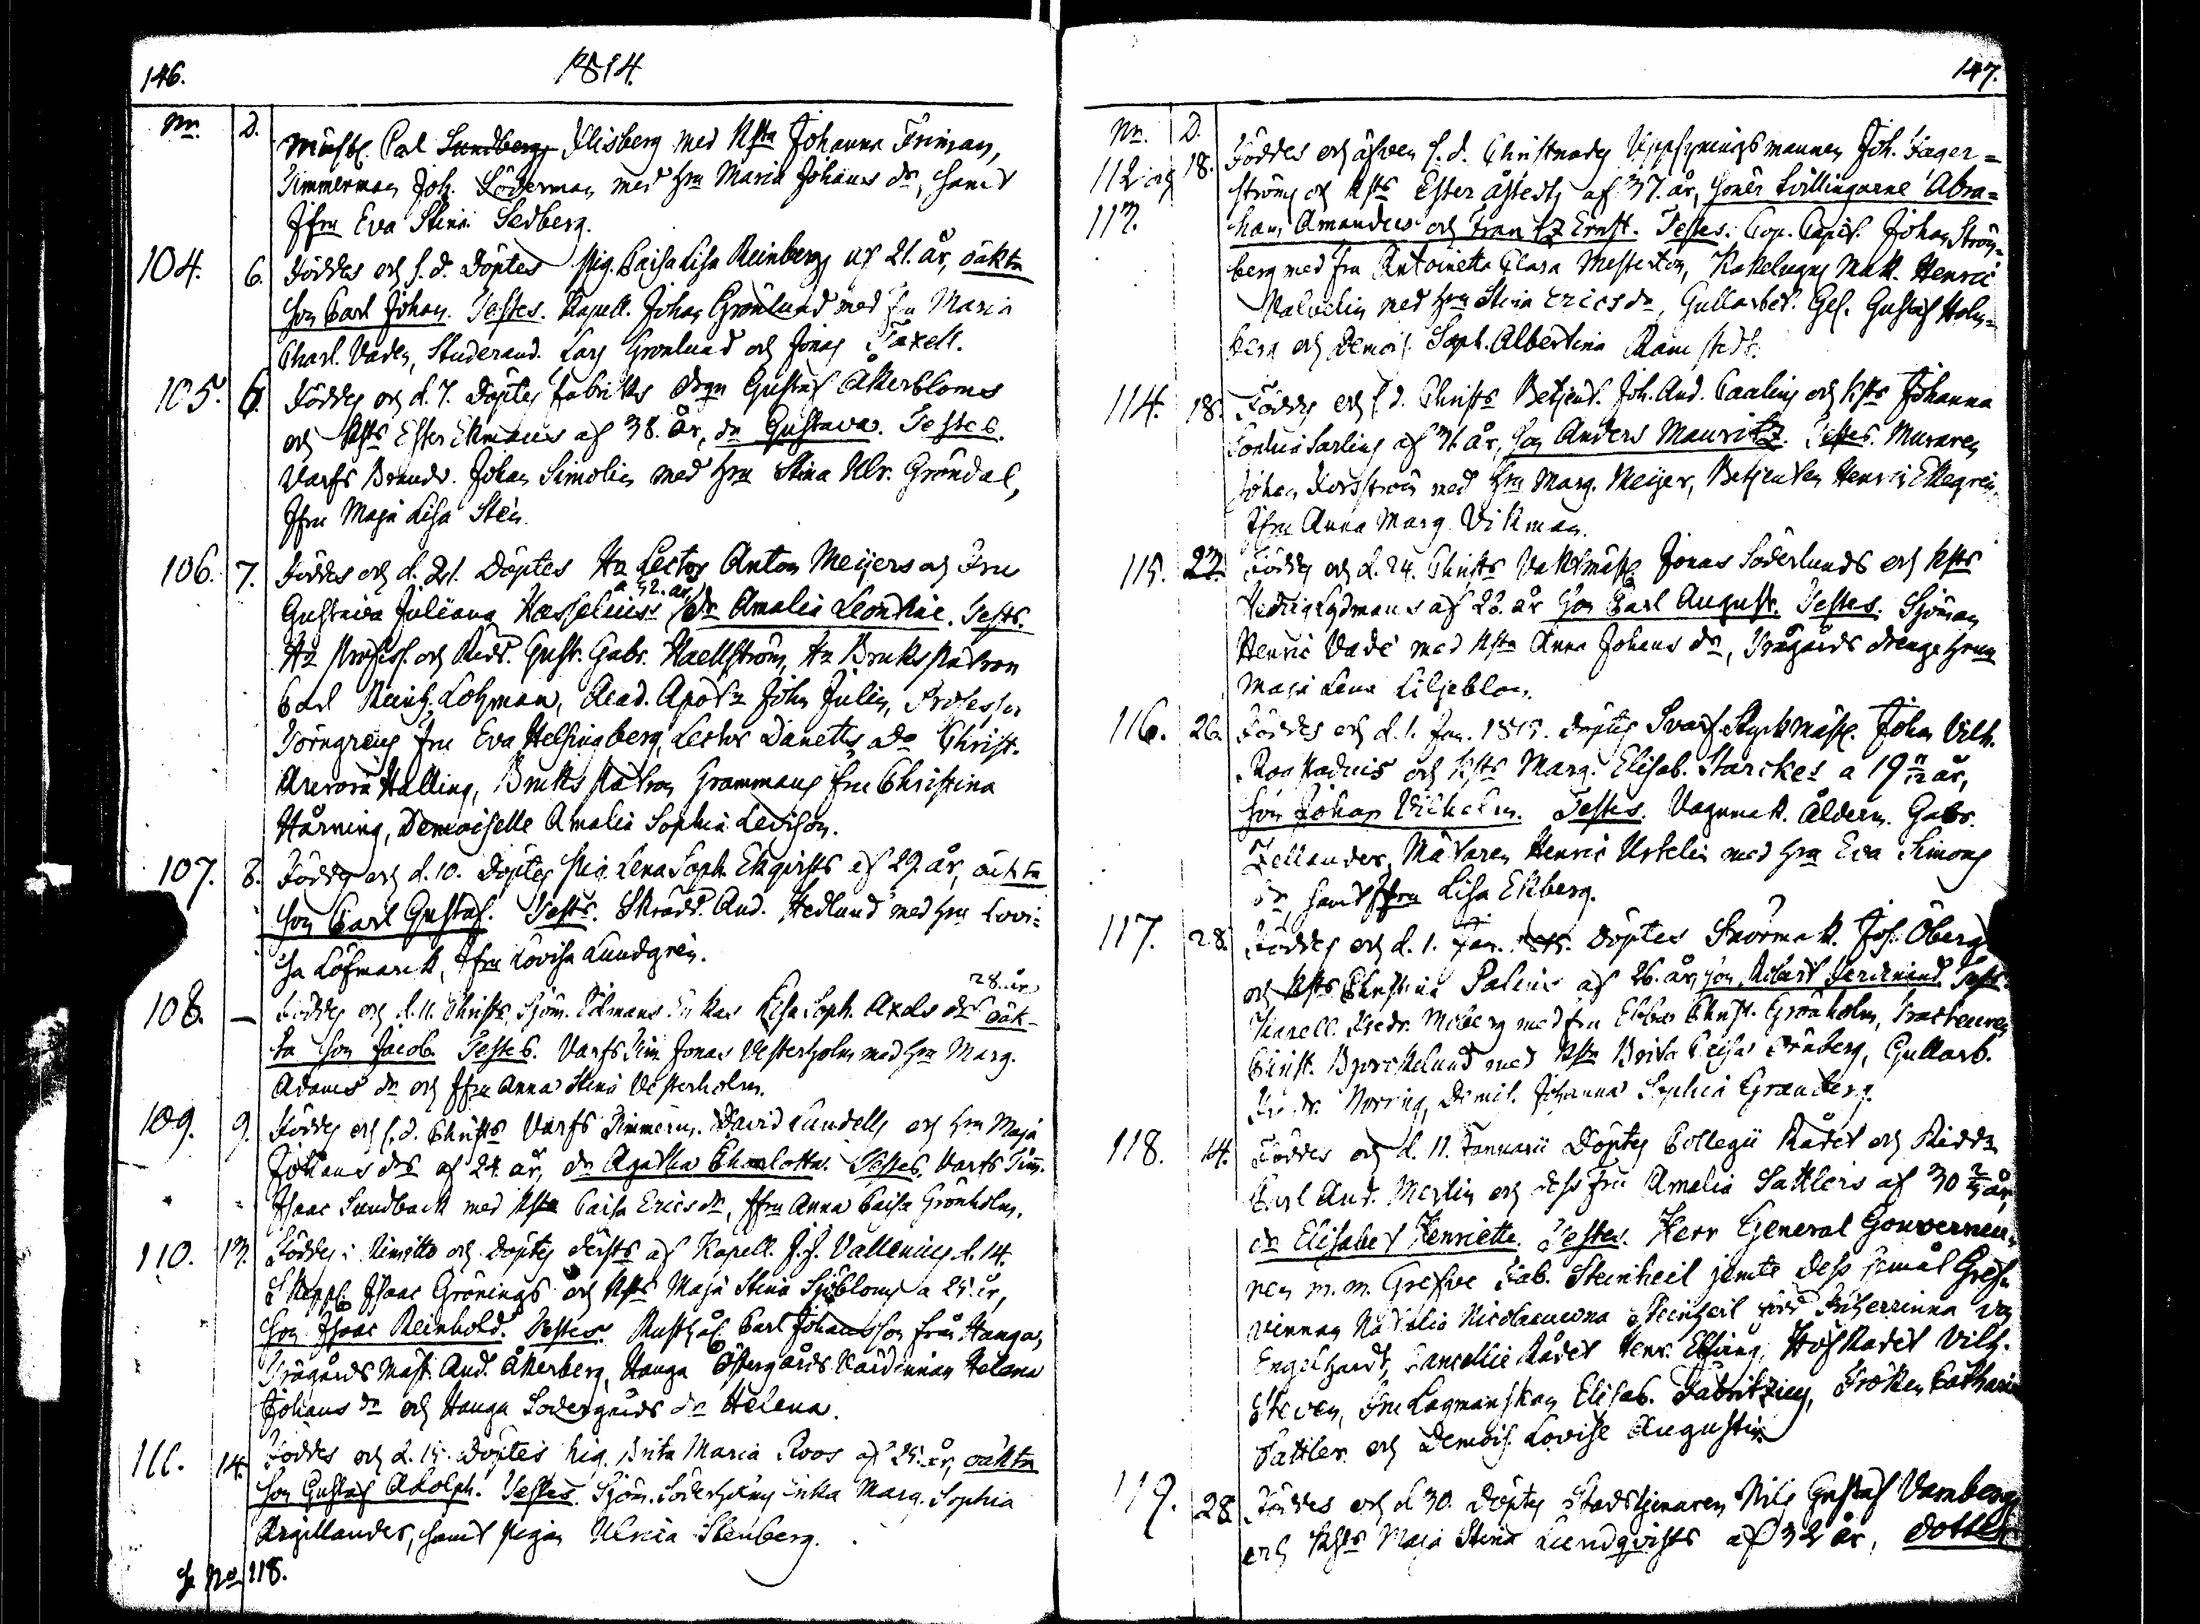 146.
1814.
Nr. D.
Mäst. Carl Sundberg Flisberg med Hstr Johanna Friman,
Timmerman Joh. Söderman med Hru Maria Johans dr, samt
Jfru Eva Stina Sedberg.
104. 6. Föddes och s. d. Döptes Pig. Caisa Lisa Reinberg af 21. år, oäkta
son Carl Johan. Testes. Kapell. Johan Grönlund med Fru Maria
Charl. Vadén, Studerand. Lars Grönlund och Jonas Taxell.
105. 6. Föddes och d. 7. Döptes fabriks drgn Gustaf Åkerbloms
och Hsts Ester Ekmans af 38. år, dr Gustava. Testes.
Varfs Brandv. Johan Simolin med Hru Stina Ulr. Gröndal,
Jfru Maja Lisa Sten.
106. 7. Föddes och d. 21. Döptes Hr Lector Anton Meijers och Fru
Gustaiva Juliana Hasselius a 42. år, dr Amalia Leontine. Tests.
Hr Profess. och Ridd. Gust. Gabr. Haellström, Hr Bruks Patron
Carl Reinh. Lohman, Acad. Apotr John Julin, Professor
Törngrens fru Eva Helsingberg, Lector Danells do Christ.
Aurora Halling, Bruks Patron Grammans fru Christina
Hårning, Demoiselle Amalia Sophia Levison.
107. 8. Föddes och d. 10. Döptes Pig. Lena Soph. Ekqvists af 29. år, oäkta
son Carl Gustaf. Tests. Skrädd. And. Hedlund med Hru Lovi-
sa Löfmarck, Jfru Lovisa Lundgrén.
108. — Föddes och d. 11. Christs Sjöm. Ödmans Enkas Lisa Soph. Axels dr 28. år oäk-
ta son Jacob. Testes. Varfs Tim. Jonas Vesterholm med Hru Marg.
Adams dr och Jfru Anna Stina Vesterholm.
109. 9. Föddes och s. d. Christs Varfs Timmerm. David Lundells och Hru Maja
Johans drs af 24. år, dr Agatha Charlotta. Testes. Varfs Tim.
Isaac Sundback med Hstr Caisa Erics dr, Jfru Anna Caisa Grönholm.
110. 13. Föddes i Rimitto och Döptes derst. af Kapell. J. J. Vallenius d. 14.
Skepp. Isaac Grönings och Hsts Maja Stina Sjöbloms a 25. år,
son Isaac Reinhold. Testes. Rusthål. Carl Johansson från Hanga,
Trägårds Mäst. And. Åkerberg, Hanga Östergårds Värdinnan Helena
Johans dr och Hanga Södergårds dr Helena.
111. 14. Föddes och d. 15. Döptes Pig. Brita Maria Roos af 25. år, oäkta
son Gustaf Adolph. Testes. Sjöm. Söderholms Enka Marg. Sophia
Argillander, samt Pigan Ulrica Stenberg.
se No 118.
147.
Nr. D.
112 och 18. Föddes och äfven s. d. Christnades Uppsyningsmannen Joh. Fager-
ströms och Hsts Ester Åstedts af 37. år, söner Tvillingarne Abra-
113. ham Amandus och Frantz Ernst. Testes. Cop. Capit. Johan Ström-
berg med fru Antoinetta Clara Mesterton, Kakelugns Mak. Henric
Malvelin med Hru Stina Erics dr, Gullarbet. Ges. Gustaf Holm-
berg och Demois. Soph. Albertina Ramstedt.
114. 18. Föddes och s. d. Christs Betjent. Joh. And. Carlins och Hsts Johanna
Sophia Sarlins af 31. år, son Anders Mauritz. Testes. Muraren
Johan Forsström med Hru Marg. Meijer, Betjenten Henric Ekegren,
Jfru Anna Marg. Vikman.
115. 23. Föddes och d. 24. Christs Vaktmäst. Jonas Söderlunds och Hsts
Hedvig Lydmans af 28. år son Carl August. Testes. Sjöman
Henric Vade med Hstr Anna Johans dr, Trägårds drenge Hrun
Maja Lena Liljeblom.
116. 26. Föddes och d. 1. Jan. 1815. döptes Svarf. Styckmäst. Johan Vilh.
och Hsts Marg. Elisab. Starckes a 19 11/12 år,
son Johan Vilhelm. Testes. Vagnmak. Åldern. Gabr.
Zellander, Målaren Henric Urtelin med Hru Eva Simons
dr samt Jfru Lisa Ekberg.
117. 28. Föddes och d. 1. Jan. 1815. Döptes Snörmak. Joh. Öberg
och Hsts Christina Palins af 26. år, son Robert Ferdinand. Test.
Kapell. Fredr. Moberg med fru Ebba Christ. Grönholm, Tracteuren
Christ. Björcklund med Hstr Brita Caisa Enberg, Gullarb.
Fredr. Norring, Demll. Johanna Sophia Granberg.
118. 14. Föddes och d. 11. Januarii Döptes Collegii Rådet och Riddr
Carl And. Mertin och dess Fru Amalia Sattlers af 30 2/3 år,
dr Elisabet Henriette. Testes. Herr General Gouverneu-
ren m. m. Grefve Fab. Steinheil jemte dess gemål Gref-
vinnan Natalia Nicolaievna Steinheil född Friherrinna von
Engelhardt, Cancellie Rådet Henr. Effring, Hof Rådet Vilh.
Steven, Fru Lagmanskan Elisab. Fabritzius, Fröken Catharin
Sattler och Demois. Lovise Augustin
119. 28. Föddes och d 30. Döptes Stadstjenaren Nils Gustaf Vambergs
och Hsts Maja Stina Lundqvists af 32 år, dotter